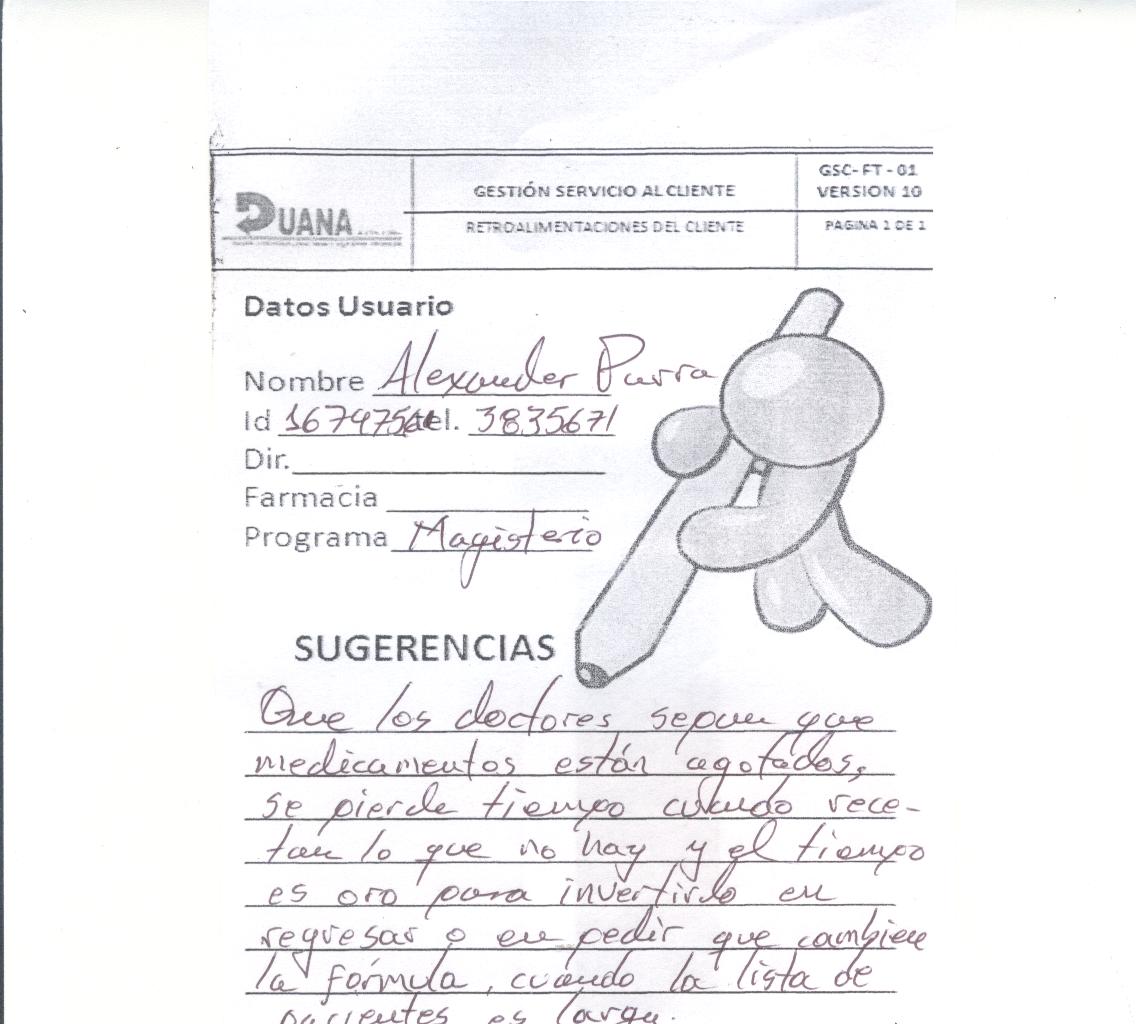 DUANA
GESTIÓN SERVICIO AL CLIENTE
RETROALIMENTACIONES DEL CLIENTE
GSC- FT - 01
VERSION 10
PAGINA 1 DE 1
Datos Usuario
Nombre Alexander Parra
Id tel. 3835671
Dir.
Farmacia
Programa Magisterio
SUGERENCIAS
Que los doctores sepan que
medicamentos están agotados,
se pierde tiempo cuando rece-
tan lo que no hay y el tiempo
es oro para invertirlo en
regresar o en pedir que cambien
la fórmula, cuando la lista de
pacientes es larga.